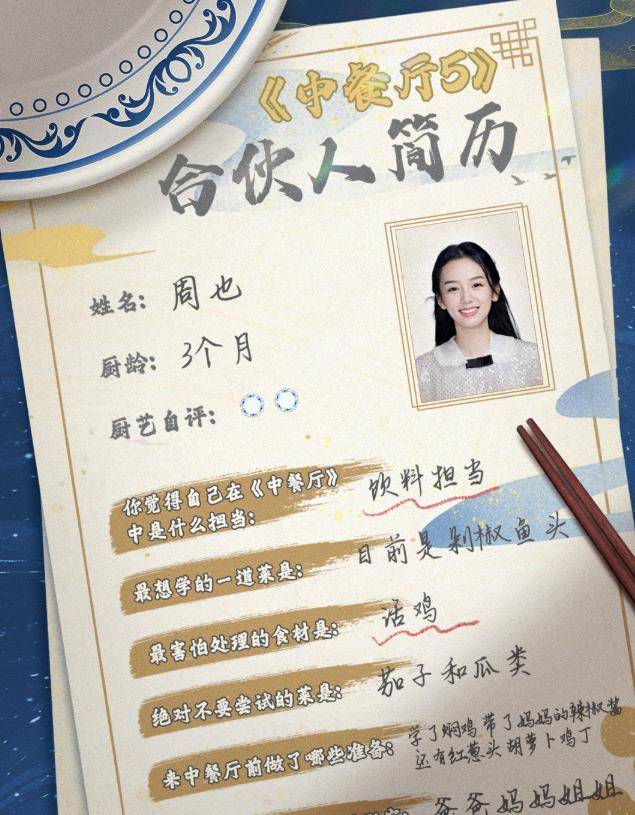 《中餐厅5》
合伙人简历
姓名: 周也
厨龄: 3个月
厨艺自评:
你觉得自己在《中餐厅》
中是什么担当: 饮料担当
最想学的一道菜是: 目前是剁椒鱼头
最害怕处理的食材是: 活鸡
绝对不要尝试的菜是: 茄子和瓜类
来中餐厅前做了哪些准备: 学了焖鸡 带了妈妈的辣椒酱
还有红葱头 胡萝卜鸡丁
爸爸妈妈姐姐